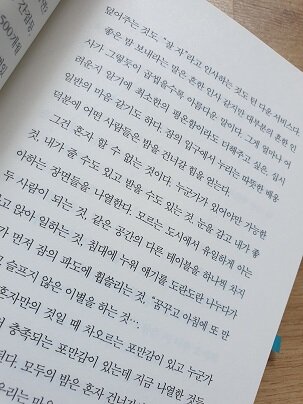 덮어주는 것도, "잘 자"라고 인사하는 것도 런 다운 서비스다.
좋은 밤 보내라는 말은 흔한 인사 같지만 대부분의 흔한 인
사가 그렇듯이 곱씹을수록 아름다운 말이다. 그게 얼마나 어
려운지 알기에 최소한의 평온함이라도 다해주고 싶은, 심시
일반의 마음 같기도 하다. 잠의 입구에서 누리는 따뜻한 배웅
덕분에 어떤 사람들은 밤을 건너갈 힘을 얻는다.
그건 혼자 할 수 없는 것이다. 누군가가 있어야만 가능한
것, 내가 줄 수도 있고 받을 수도 있는 것. 눈을 감고 내가 좋
아하는 장면들을 나열한다. 모르는 도시에서 유일하게 아는
두 사람이 되는 것, 같은 공간의 다른 테이블을 하나씩 차지
고 앉아 일하는 것, 침대에 누워 얘기를 도란도란 나누다가
가 먼저 잠의 파도에 휩쓸리는 것, "꿈꾸고 아침에 또 만
고 슬프지 않은 이별을 하는 것…
혼자만의 것일 때 차오르는 포만감이 있고 누군가
서 충족되는 포만감이 있는데 지금 나열한 것들
이다. 모두의 밤은 혼자 건너
500개의